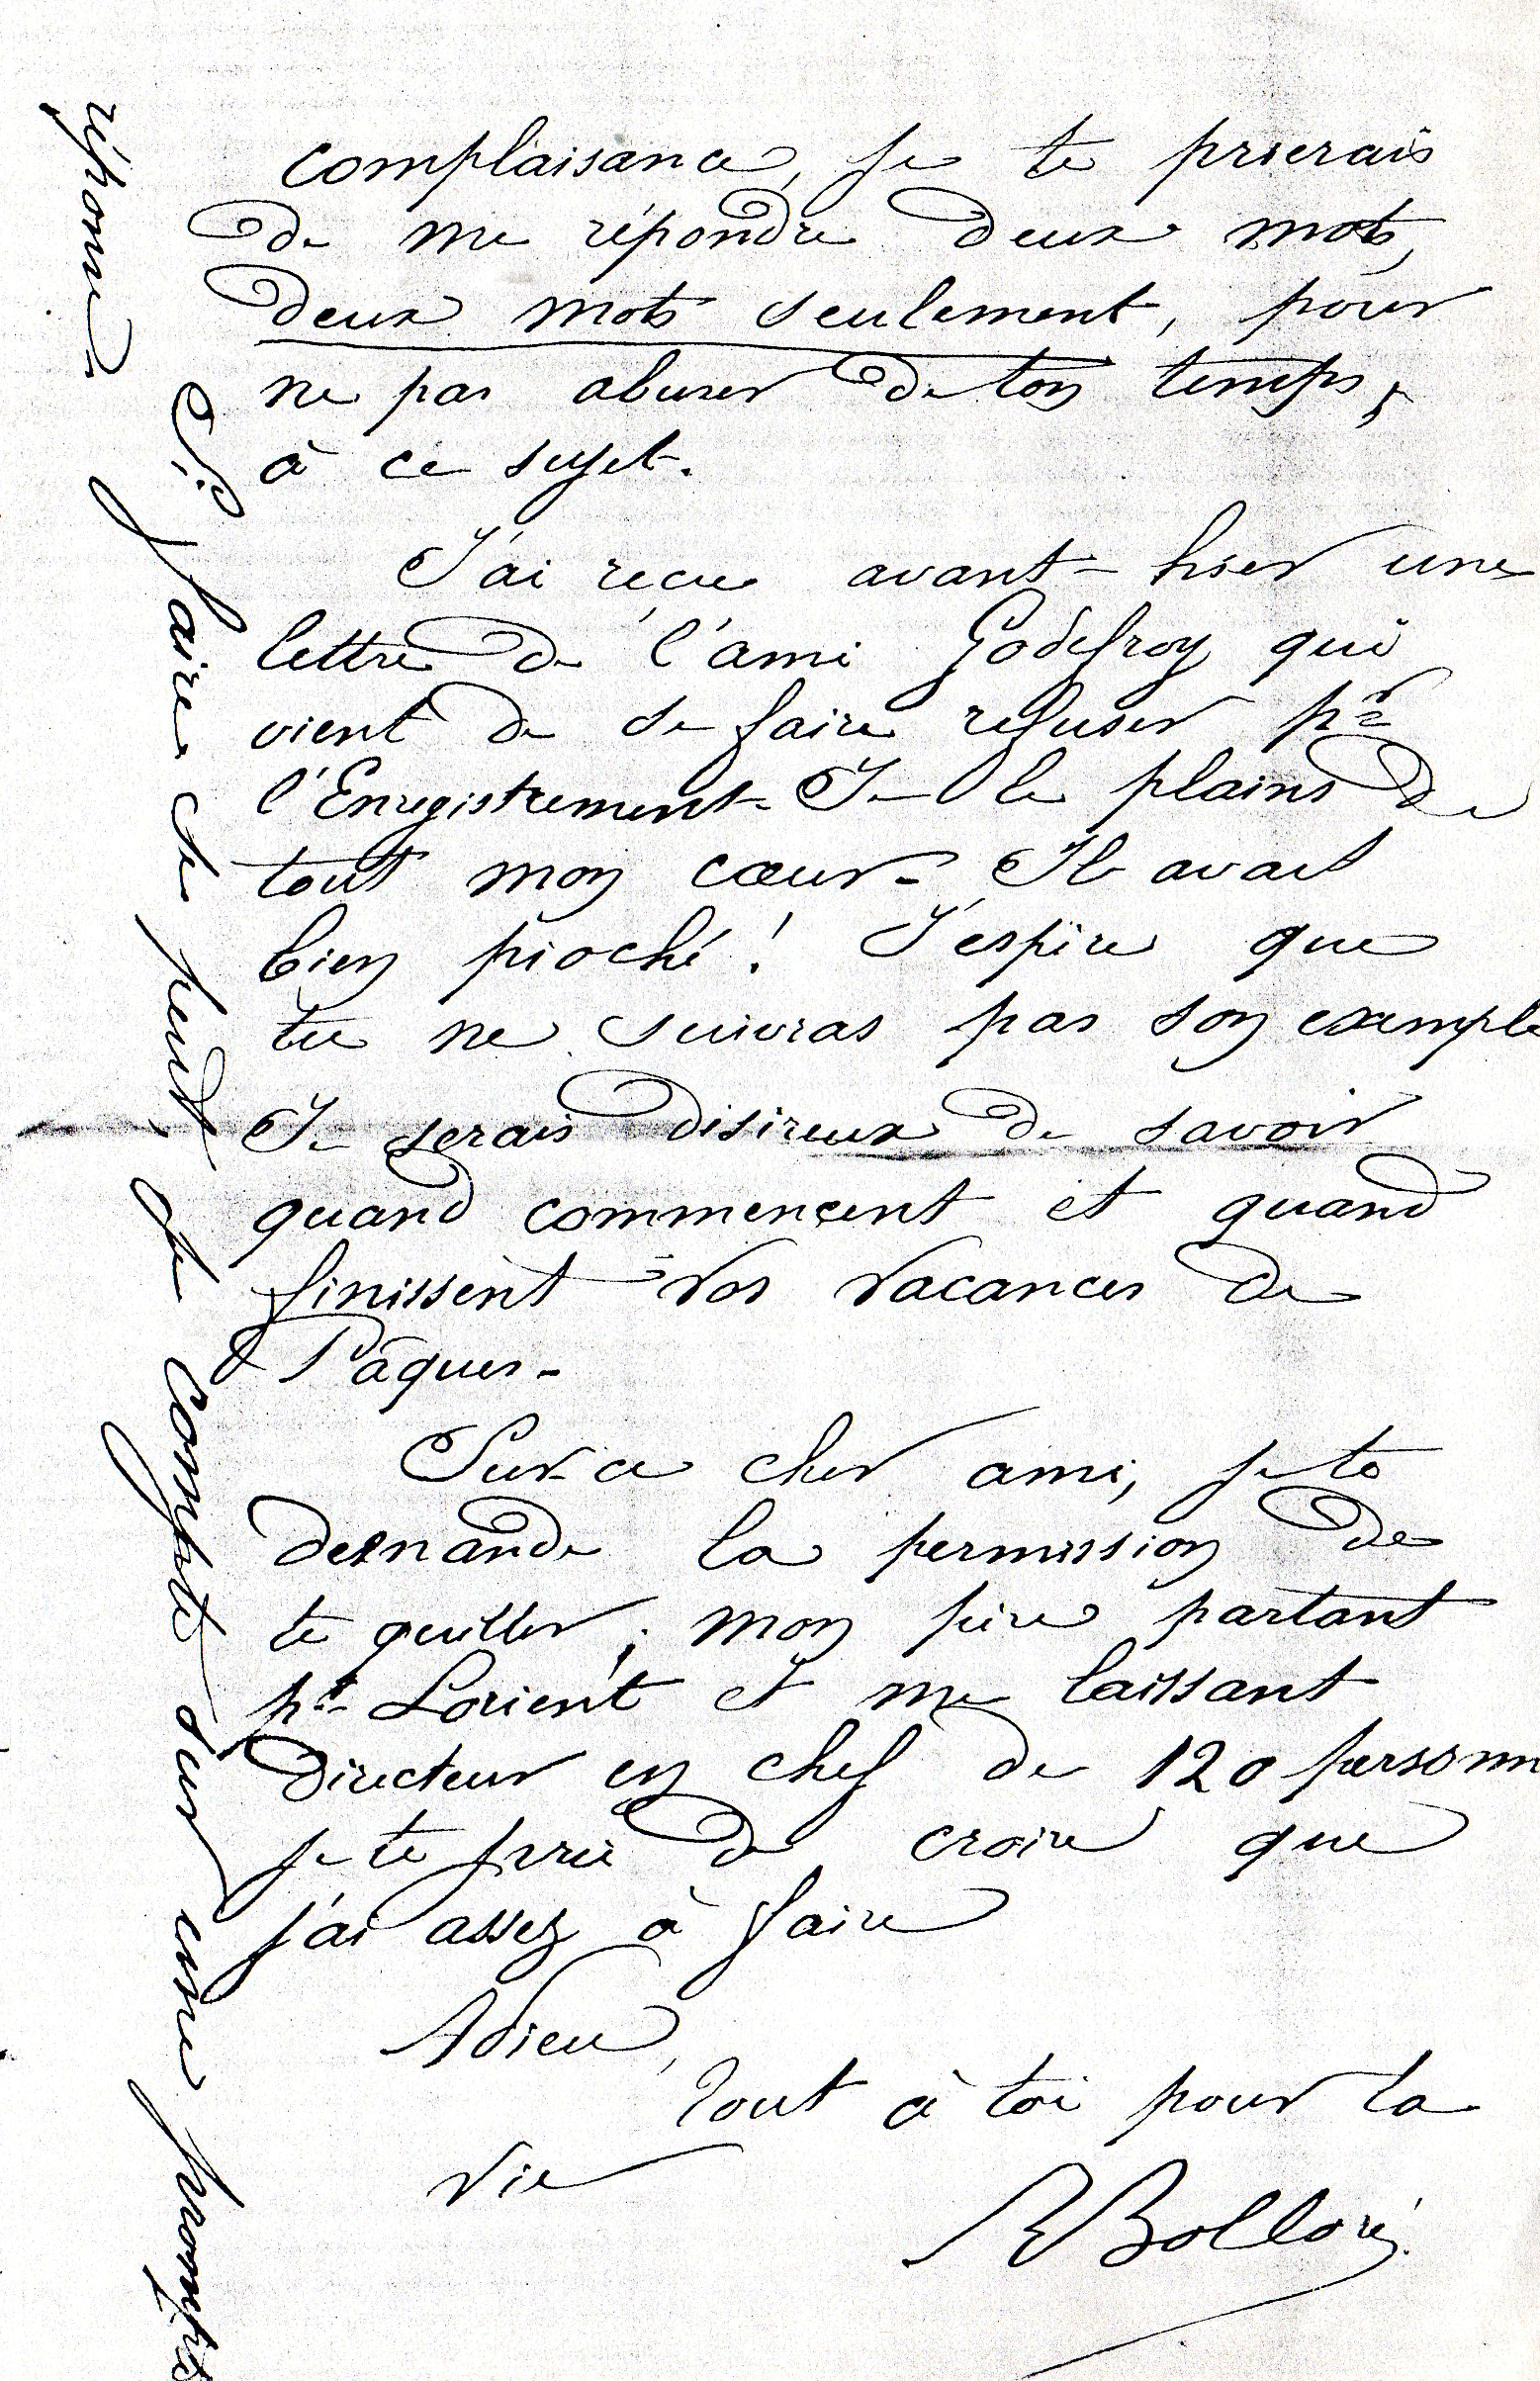 complaisance, je te prierais
de me répondre deux mots,
deux mots seulement, pour
ne pas abuser de ton temps,
à ce sujet.
J'ai reçu avant-hier une
lettre de l'ami Godefroy qui
vient de se faire refuser pr
l'Enregistrement. Je le plains de
tout mon cœur. Il avait
bien pioché ! J'espère que
tu ne suivras pas son exemple
Je serais désireux de savoir
quand commencent et quand
finissent vos vacances de
Pâques.
Sur ce cher ami, je te
demande la permission de
te quitter ; mon père partant
pr Lorient et me laissant
Directeur en chef de 120 personn
je te prie de croire que
j'ai assez à faire
Adieu,
Tout à toi pour la
vie
R Bolloré
Si faire se peut, je compte sur une prompte
réponse